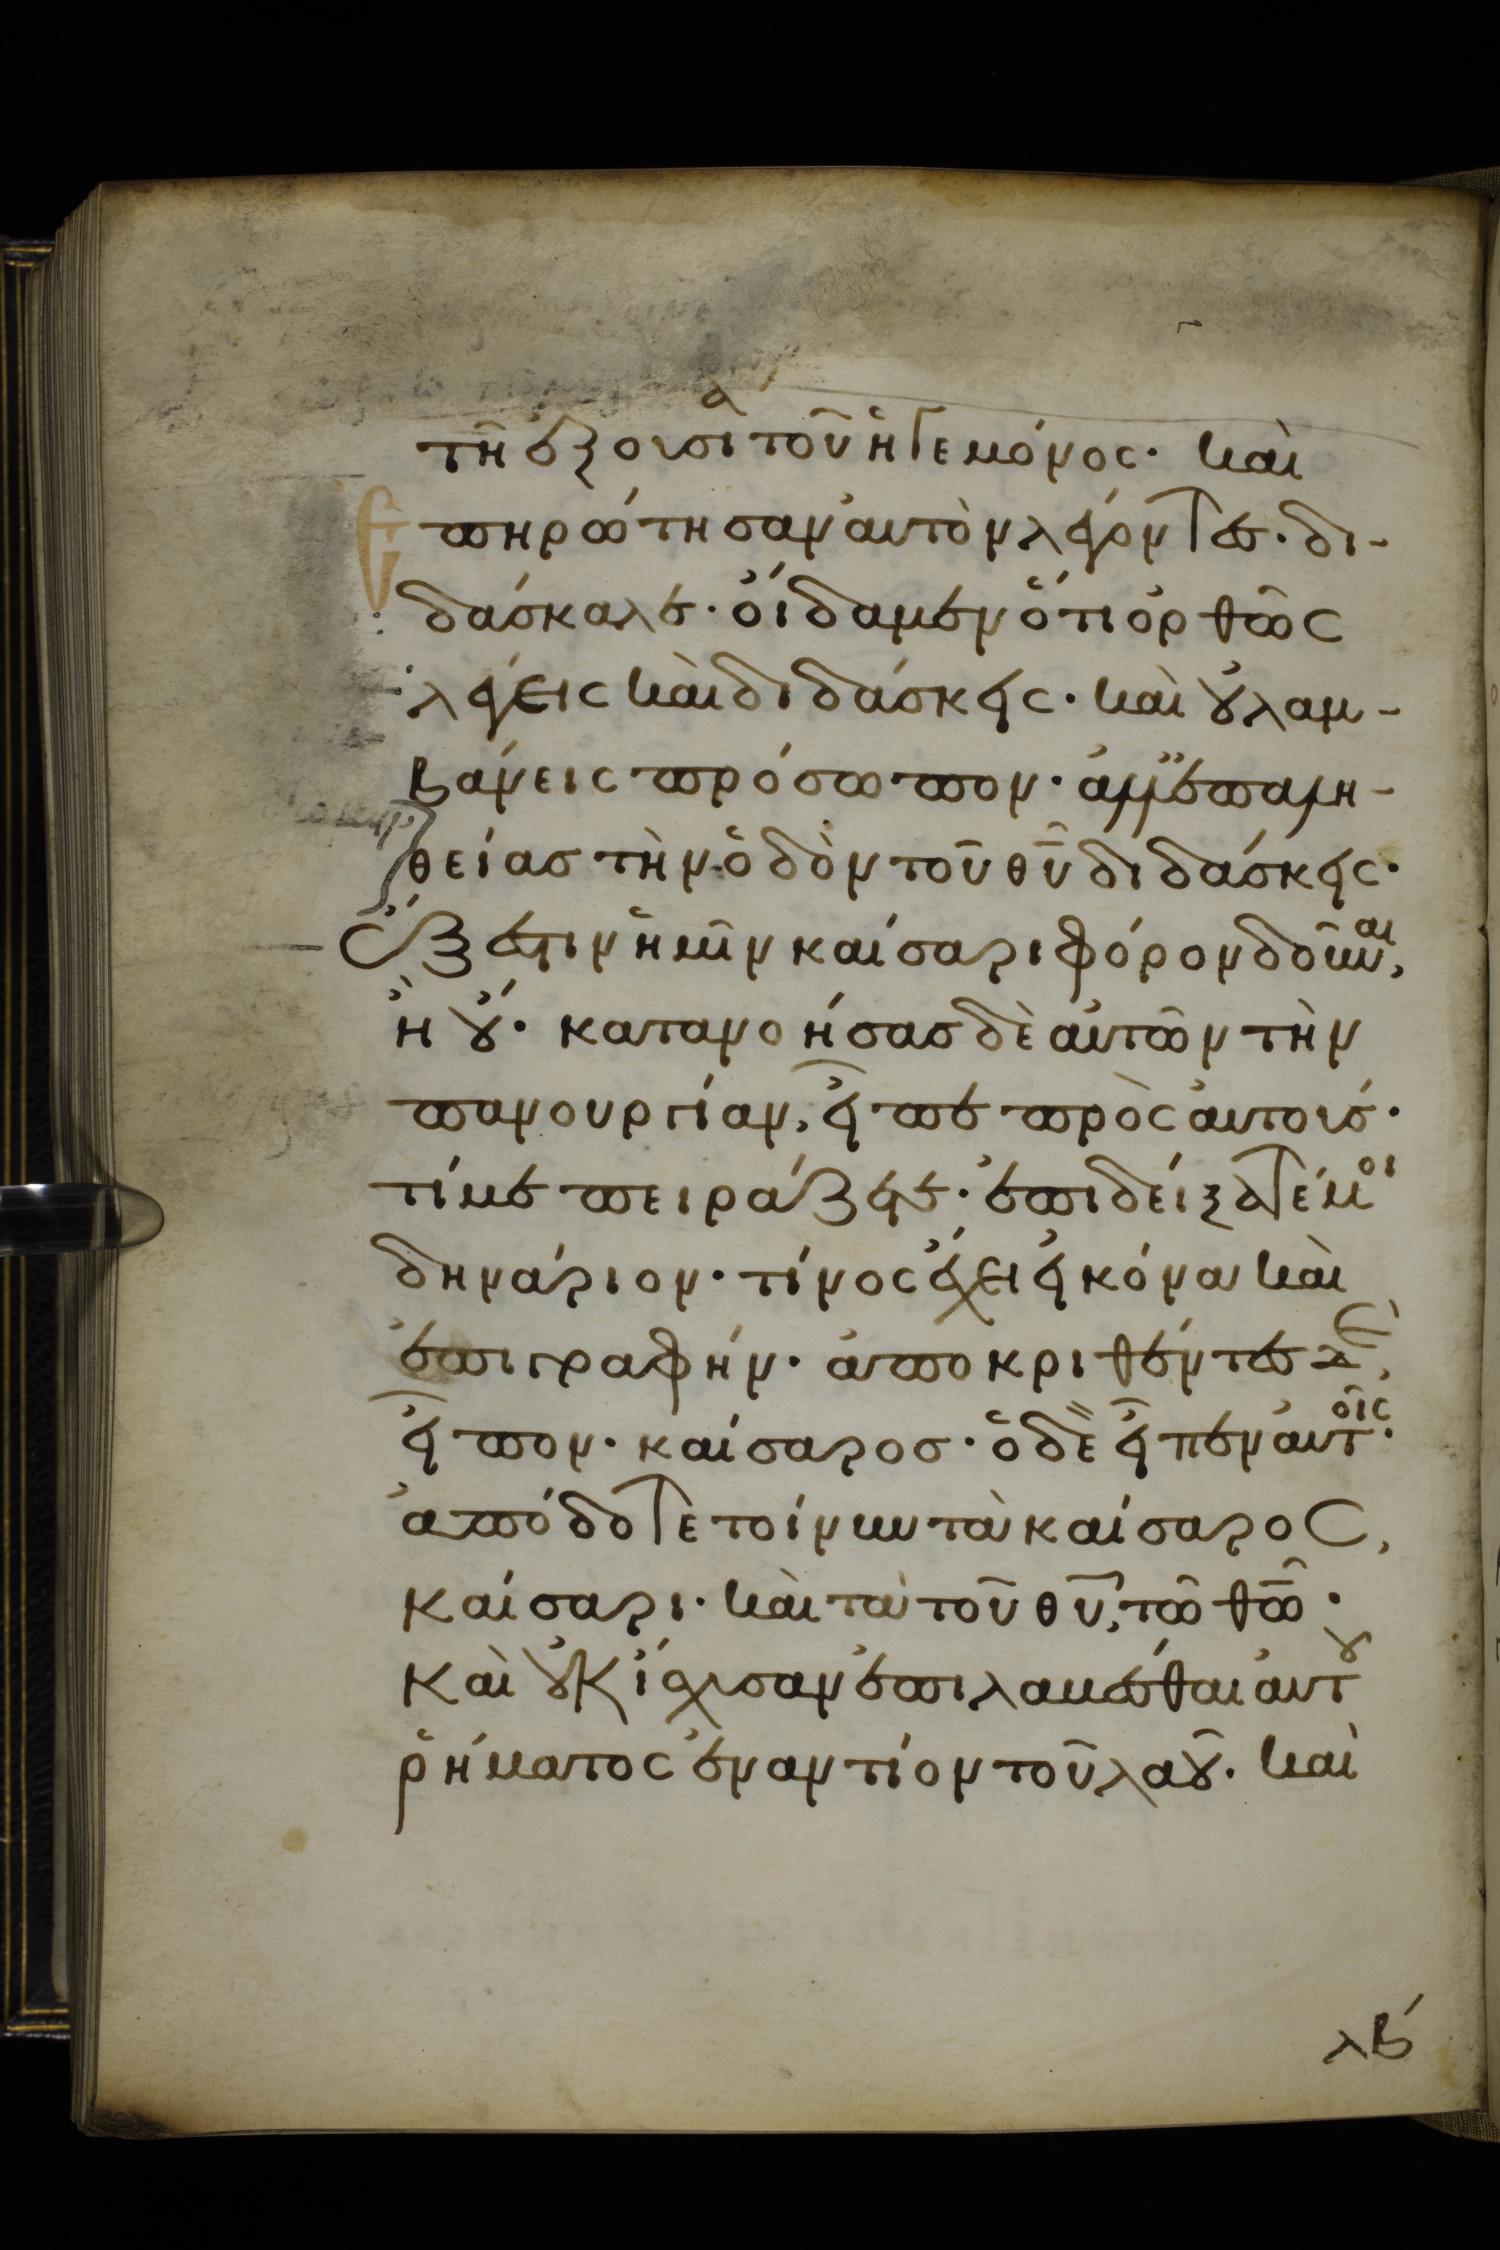 τῆ ἐξουσία τοῦ ἡγεμόνος· καὶ
ἐπηρώτησαν αὐτὸν λέγοντες· δι-
δάσκαλε· οἴδαμεν ὅτι ὀρθῶς
λέγεις καὶ διδάσκεις· καὶ οὐ λαμ-
βάνεις πρόσωπον· ἀλλ' ἐπ' αλη-
θείας τὴν ὁδὸν τοῦ θυ διδάσκεις·
ἔξεστιν ἡμῖν καίσαρι φόρον δοῦναι,
ἢ οὔ· κατανοήσας δὲ αὐτῶν τὴν
πανουργίαν, εἶπε πρὸς αὐτούς·
τί με πειράζετε· ἐπιδείξατέ μοι
δηνάριον· τίνος ἔχει εἰκόνα καὶ
ἐπιγραφήν· ἀποκριθέντες δὲ,
εἶπον· καίσαρος· ὁ δὲ εἶπεν αὐτοῖς·
ἀπόδοτε τοίνυν τὰ καίσαρος,
καίσαρι· καὶ τὰ τοῦ θυ, τῶ θω·
καὶ οὐκ ἴσχυσαν ἐπιλαβέσθαι αὐτοῦ
ῥήματος ἐναντίον τοῦ λαοῦ· καὶ
λβ´